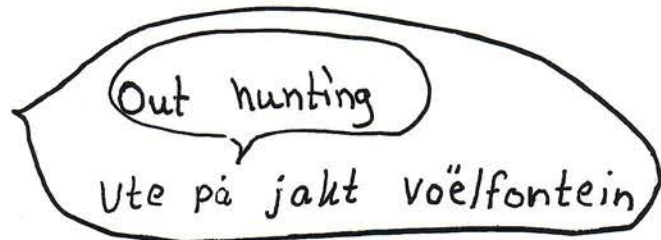 Out hunting
Ute på jakt voëlfontein